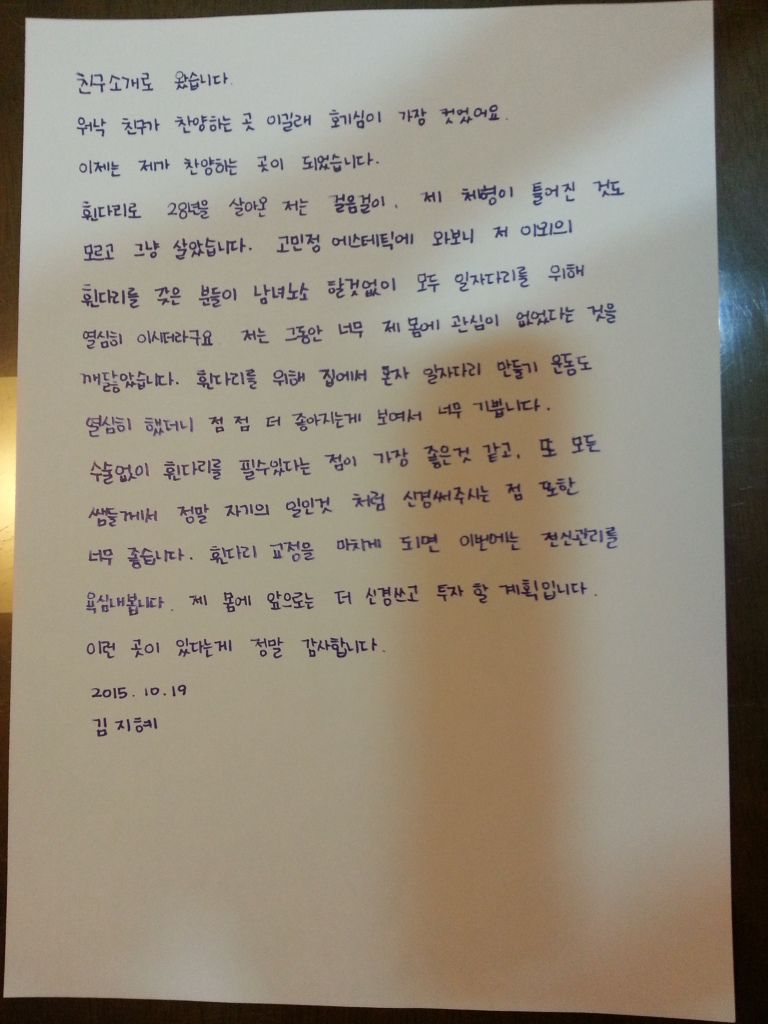 친구소개로 왔습니다.
워낙 친구가 찬양하는 곳 이길래 호기심이 가장 컷었어요.
이제는 제가 찬양하는 곳이 되었습니다.
휜다리로 28년을 살아온 저는 걸음걸이, 제 체형이 틀어진 것도
모르고 그냥 살았습니다. 고민정 에스테틱에 와보니 저 이외의
휜다리를 갖은 분들이 남녀노소 할것없이 모두 일자다리를 위해
열심히 이시더라구요 저는 그동안 너무 제 몸에 관심이 없었다는 것을
깨닳았습니다. 휜다리를 위해 집에서 혼자 일자다리 만들기 운동도
열심히 했더니 점 점 더 좋아지는게 보여서 너무 기쁩니다.
수술없이 휜다리를 필수있다는 점이 가장 좋은것 같고, 또 모든
쌤들께서 정말 자기의 일인것 처럼 신경써주시는 점 또한
너무 좋습니다. 휜다리 교정을 마치게 되면 이번에는 전신관리를
욕심내봅니다. 제 몸에 앞으로는 더 신경쓰고 투자 할 계획입니다.
이런 곳이 있다는게 정말 감사합니다.
2015.10.19
김지혜